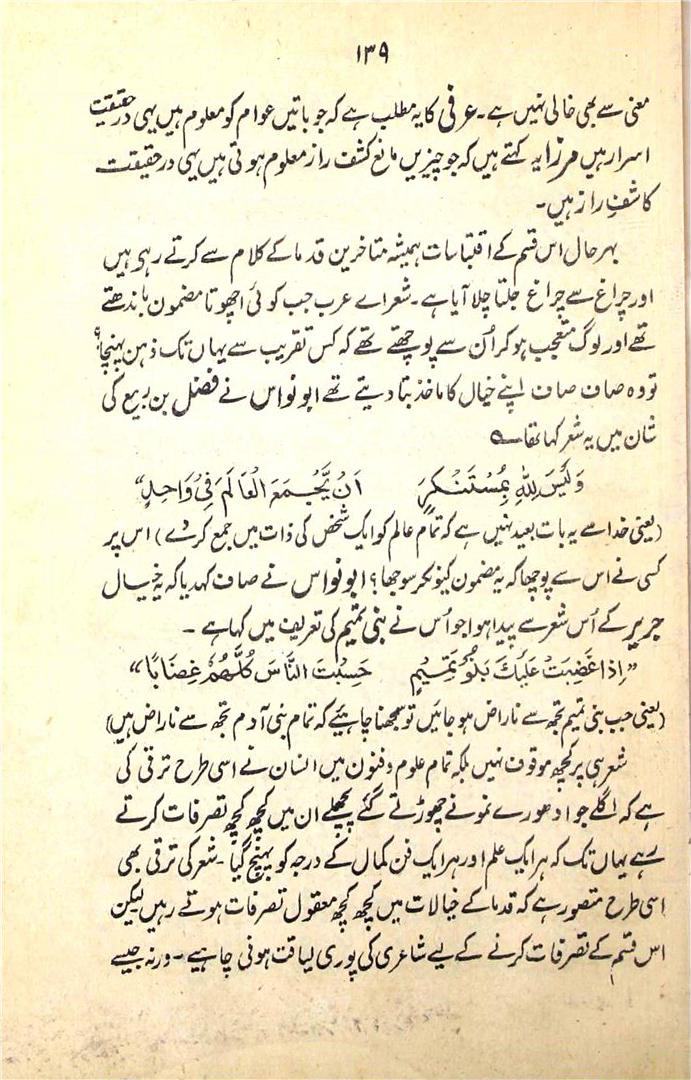 ۱۳۹
معنی سے بھی خالی نہیں ہے۔ عرفی کا یہ مطلب ہے کہ جو باتیں عوام کو معلوم ہیں یہی درحقیقت
اسرار ہیں مرزا یہ کہتے ہیں کہ جو چیزیں مانع کشف راز معلوم ہوتی ہیں یہی درحقیقت
کاشفِ راز ہیں۔
بہر حال اس قسم کے اقتباسات ہمیشہ متاخرین قدما کے کلام سے کرتے رہی ہیں
اور چراغ سے چراغ جلتا چلا آیا ہے۔ شعراے عرب جب کوئی اچھوتا مضمون باندھتے
تھے اور لوگ متعجب ہوکر اُن سے پوچھتے تھے کہ کس تقریب سے یہاں تک ذہن پہنچا؟
تو وہ صاف صاف اپنے خیال کا ماخذ بتا دیتے تھے ابو نواس نے فضل بن ربیع کی
شان میں یہ شعر کہا تھا ؎
وَلَيْسَ لِلّٰهِ بِمُسْتَنْكَرٍ اَنْ يَّجْمَعَ الْعَالَمَ فِيْ وَاحِدٍ “
(یعنی خدا سے یہ بات بعید نہیں ہے کہ تمام عالم کو ایک شخص کی ذات میں جمع کردے) اس پر
کسی نے اس سے پوچھا کہ یہ مضمون کیونکر سوجھا؟ ابو نواس نے صاف کہدیا کہ یہ خیال
جریر کے اُس شعر سے پیدا ہوا جو اُس نے بنی تمیم کی تعریف میں کہا ہے ۔
” اِذَا غَضِبَتْ عَلَيْكَ بَنُوْ تَمِيْمٍ حَسِبْتَ النَّاسَ كُلَّهُمْ غِضَابًا “
(یعنی جب بنی تمیم تجھ سے ناراض ہوجائیں تو سمجھنا چاہیئے کہ تمام بنی آدم تجھ سے ناراض ہیں)
شعر ہی پر کچھ موقوف نہیں بلکہ تمام علوم و فنون میں انسان نے اسی طرح ترقی کی
ہے کہ اگلے جو ادھورے نمونے چھوڑتے گئے پچھلے ان میں کچھ کچھ تصرفات کرتے
رہے یہاں تک کہ ہر ایک علم اور ہر ایک فن کمال کے درجہ کو پہنچ گیا۔ شعر کی ترقی بھی
اسی طرح متصور ہے کہ قدما کے خیالات میں کچھ کچھ معقول تصرفات ہوتے رہیں لیکن
اس قسم کے تصرفات کرنے کے لیے شاعری کی پوری لیاقت ہونی چاہیے۔ ورنہ جیسے